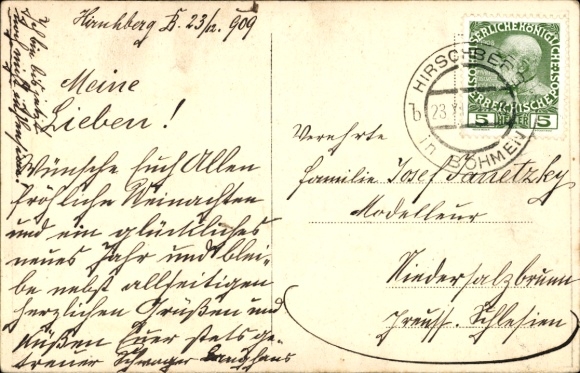 Hirschberg B. 23/12. 909
Meine
Lieben!
Wünsche Euch Allen
fröhliche Weinachten
und ein glückliches
neues Jahr und blei-
be nebst allseitigen
herzlichen Grüßen und
Küßen Euer stets ge-
treuer Schwager Langhans
Ich bin bis jetzt
noch nicht
KAISERLICHE KÖNIGLICHE
ÖSTERREICHISCHE POST
5 HELLER 5
HIRSCHBERG
b 23 X
in BÖHMEN
Verehrte
Familie Josef Janetzky
Modelleur
Niedersalzbrunn
Preuss. Schlesien